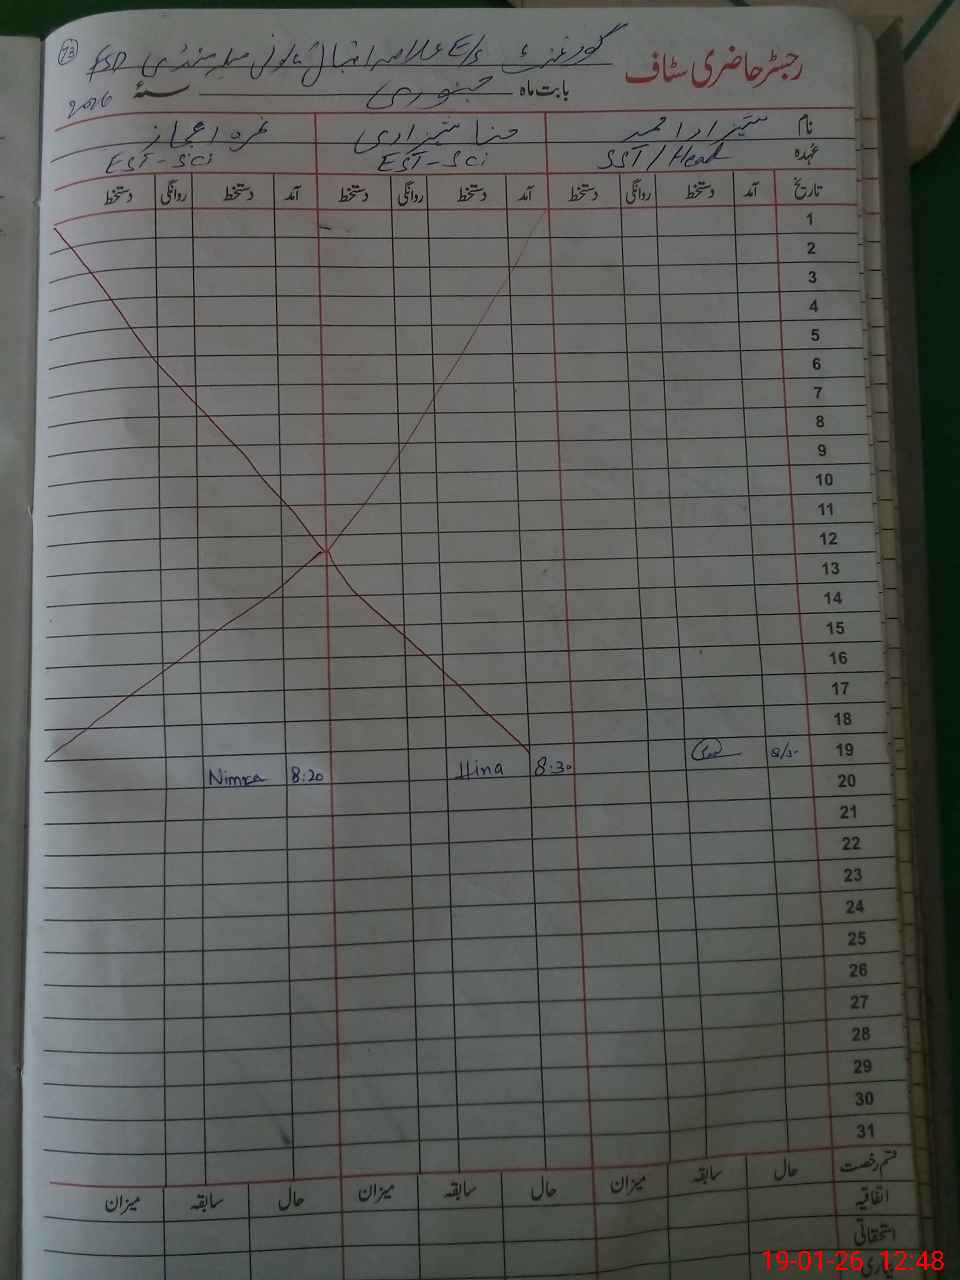 73
رجسٹر حاضری سٹاف
گورنمنٹ E/S علامہ اقبال ٹاؤن FSD
بابت ماہ جنوری سنہ 2026
نام شہزاد احمد حنا شہزادی نمرہ اعجاز
عہدہ SST / Head EST - Sci EST - Sci
تاریخ آمد دستخط روانگی دستخط آمد دستخط روانگی دستخط آمد دستخط روانگی دستخط
1
2
3
4
5
6
7
8
9
10
11
12
13
14
15
16
17
18
19 Hina 8:30 Nimra 8:20
20
21
22
23
24
25
26
27
28
29
30
31
قسم رخصت حال سابقہ میزان حال سابقہ میزان حال سابقہ میزان
اتفاقیہ
استحقاقی
19-01-26, 12:48